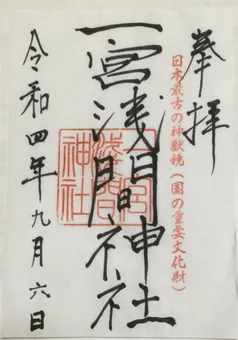 奉拝
日本最古の神獣鏡(国の重要文化財)
一宮浅間神社
一宮浅間神社
令和四年九月六日